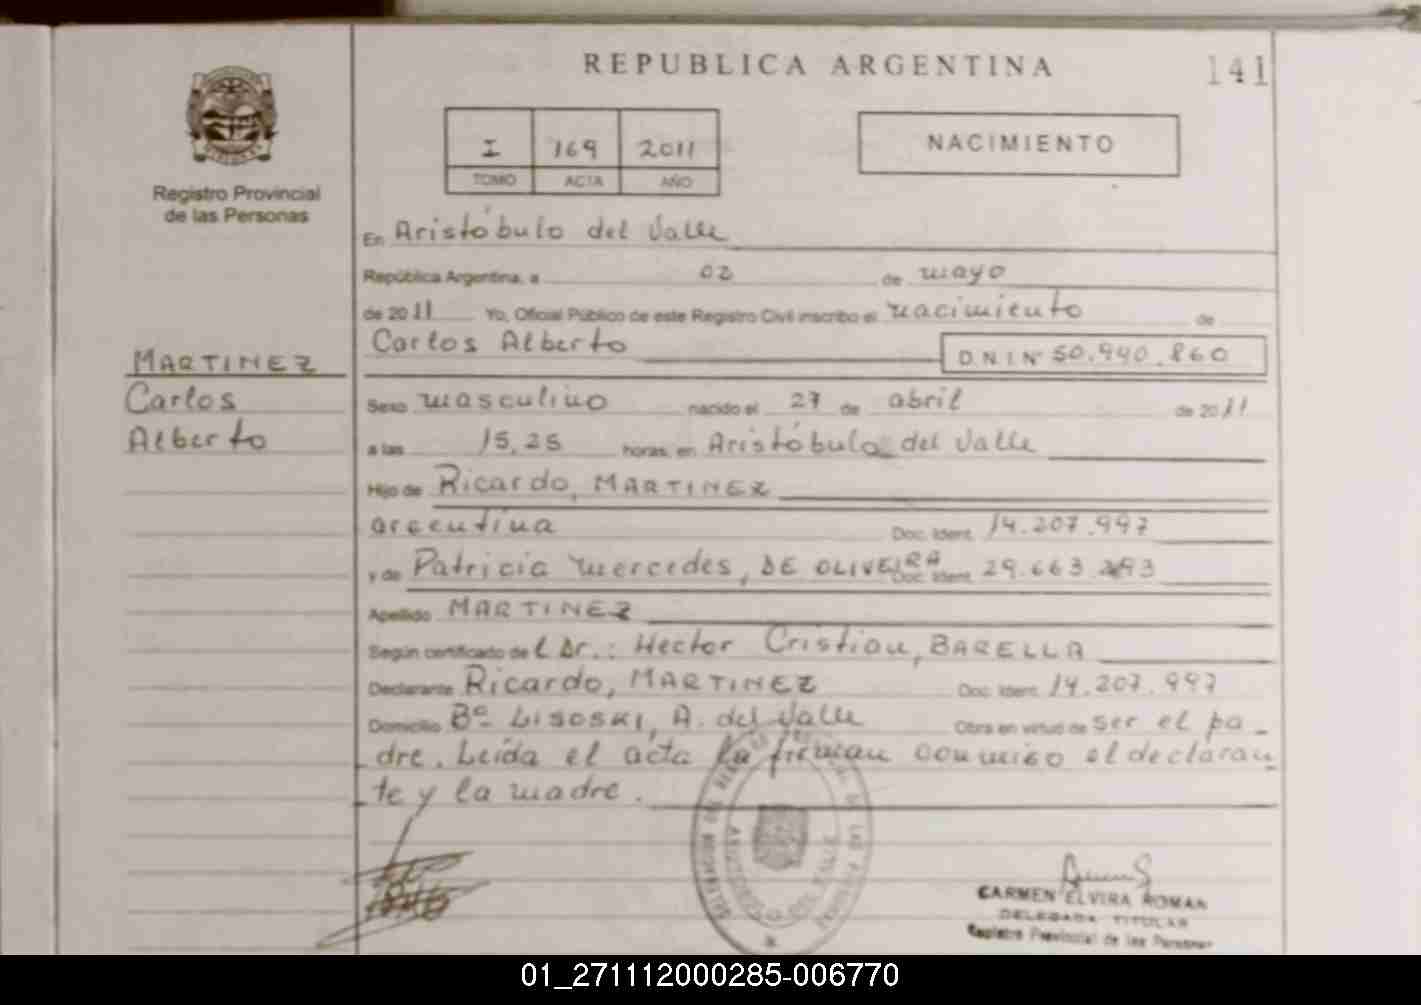 REPUBLICA ARGENTINA
141
I 169 2011
TOMO ACTA AÑO
NACIMIENTO
Registro Provincial
de las Personas
En Aristóbulo del Valle
República Argentina, a 02 de mayo
de 2011 Yo, Oficial Público de este Registro Civil inscribo el nacimiento de
Carlos Alberto D.N.I Nº 50.940.860
MARTINEZ
Carlos
Alberto
Sexo masculino nacido el 27 de abril de 2011
a las 15,25 horas, en Aristóbulo del Valle
Hijo de Ricardo, MARTINEZ
argentina Doc. Ident. 14.207.997
y de Patricia Mercedes, DE OLIVEIRA Doc. Ident. 29.663.
Apellido MARTINEZ
Según certificado del Dr.: Hector Cristian, BARELLA
Declarante Ricardo, MARTINEZ Doc. Ident. 14.207.997
Domicilio Bº LISOSKI, A. del Valle Obra en virtud de ser el pa-
dre. Leída el acta la firman conmigo el declaran
te y la madre.
ARISTOBULO DEL VALLE
CARMEN ELVIRA ROMAN
DELEGADA TITULAR
Registro Provincial de las Personas
01_271112000285-006770